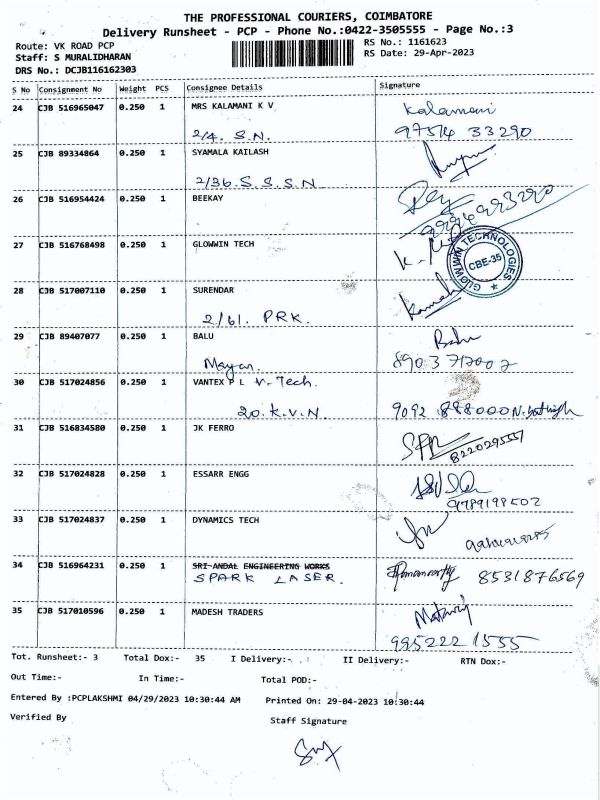 THE PROFESSIONAL COURIERS, COIMBATORE
Delivery Runsheet - PCP - Phone No.:0422-3505555 - Page No.:3
Route: VK ROAD PCP
RS No.: 1161623
Staff: S MURALIDHARAN
RS Date: 29-Apr-2023
DRS No.: DCJB116162303
S No Consignment No Weight PCS Consignee Details Signature
24 CJB 516965047 0.250 1 MRS KALAMANI K V Kalamani
2/4. S.N. 97514 33290
25 CJB 89334864 0.250 1 SYAMALA KAILASH
2/36. S.S.S.N
26 CJB 516954424 0.250 1 BEEKAY
27 CJB 516768498 0.250 1 GLOWWIN TECH
GLOWWIN TECHNOLOGIES CBE-35
28 CJB 517007110 0.250 1 SURENDAR
2/61. PRK.
29 CJB 89407077 0.250 1 BALU Balu
Mayan.
30 CJB 517024856 0.250 1 VANTEX P L V-Tech.
20. K.V.N. 9092 888000
31 CJB 516834580 0.250 1 JK FERRO
8220295557
32 CJB 517024828 0.250 1 ESSARR ENGG
9789198502
33 CJB 517024837 0.250 1 DYNAMICS TECH
34 CJB 516964231 0.250 1 SRI ANDAL ENGINEERING WORKS
SPARK LASER. 8531876569
35 CJB 517010596 0.250 1 MADESH TRADERS
995222 1555
Tot. Runsheet:- 3 Total Dox:- 35 I Delivery:- II Delivery:- RTN Dox:-
Out Time:- In Time:- Total POD:-
Entered By :PCPLAKSHMI 04/29/2023 10:30:44 AM Printed On: 29-04-2023 10:30:44
Verified By Staff Signature